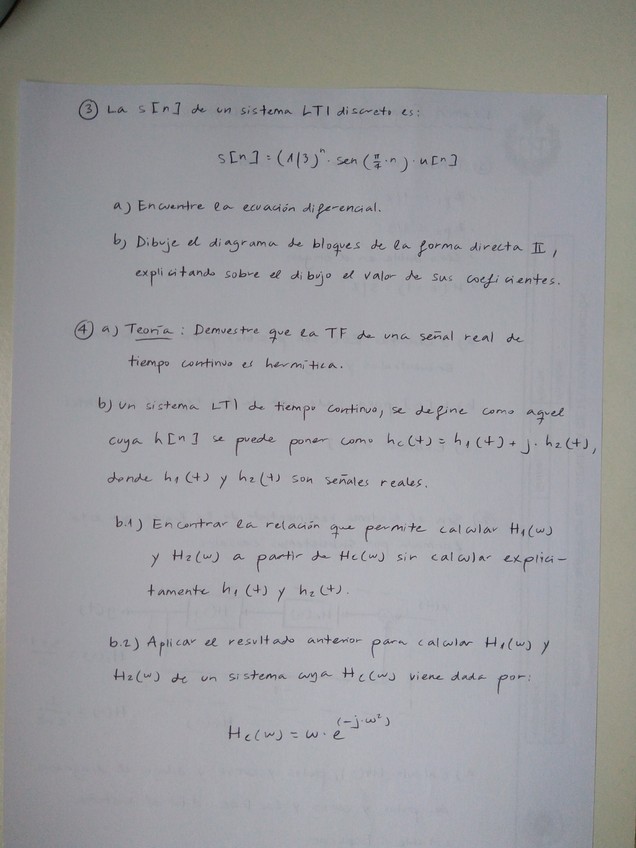 ③ La s[n] de un sistema LTI discreto es:
s[n] = (1/3)ⁿ · sen(π/4 · n) · u[n]
a) Encuentre la ecuación diferencial.
b) Dibuje el diagrama de bloques de la forma directa II,
explicitando sobre el dibujo el valor de sus coeficientes.
④ a) Teoría : Demuestre que la TF de una señal real de
tiempo continuo es hermítica.
b) Un sistema LTI de tiempo continuo, se define como aquel
cuya h[n] se puede poner como hc(t) = h1(t) + j · h2(t),
donde h1(t) y h2(t) son señales reales.
b.1) Encontrar la relación que permite calcular H1(w)
y H2(w) a partir de Hc(w) sin calcular explíci-
tamente h1(t) y h2(t).
b.2) Aplicar el resultado anterior para calcular H1(w) y
H2(w) de un sistema cuya Hc(w) viene dada por:
Hc(w) = w · e^(-j·w²)